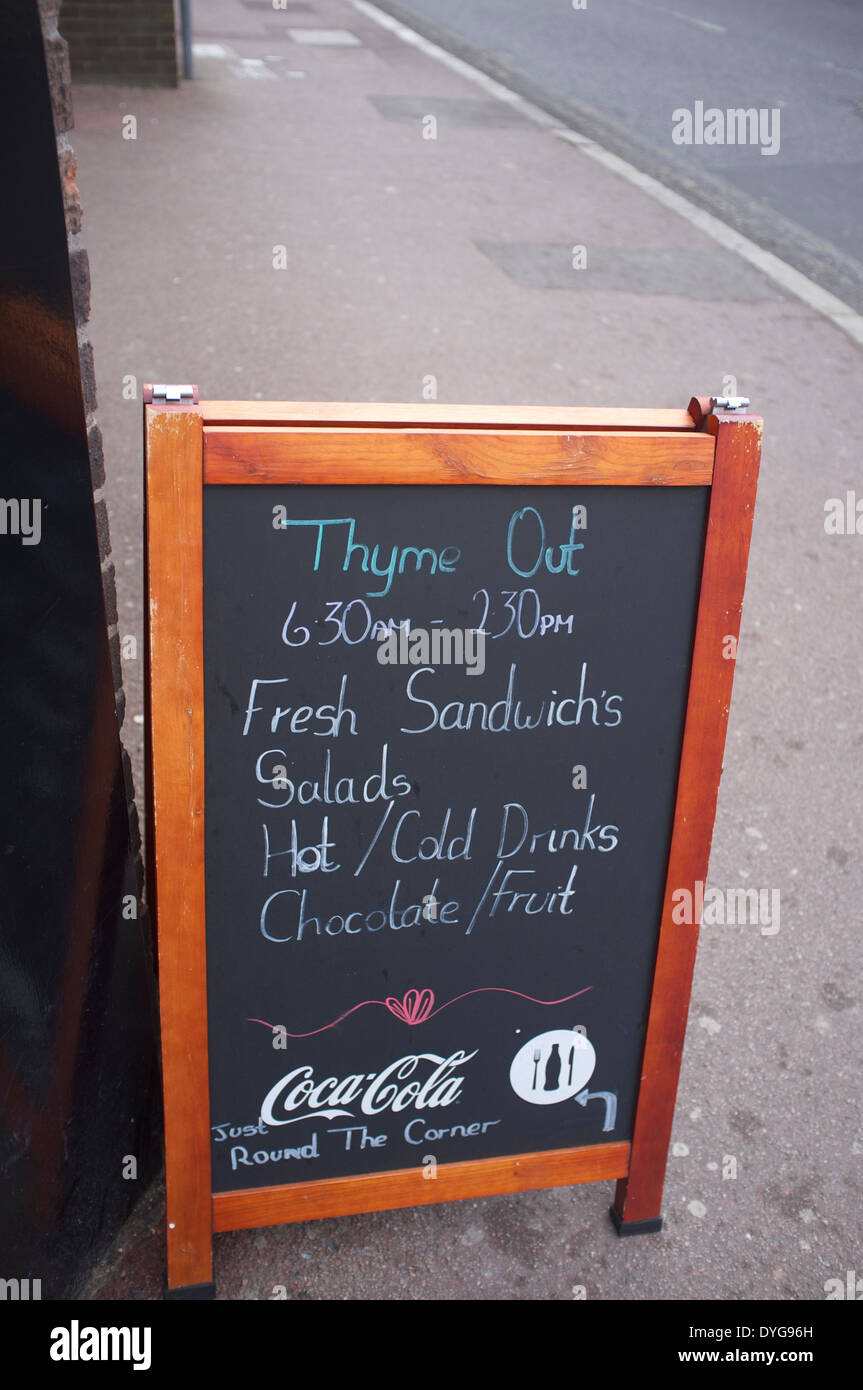 Thyme Out
6 30AM - 2 30PM
Fresh Sandwich's
Salads
Hot / Cold Drinks
Chocolate / Fruit
Coca-Cola
Just
Round The Corner
a
alamy
Image ID: DYG96H
www.alamy.com